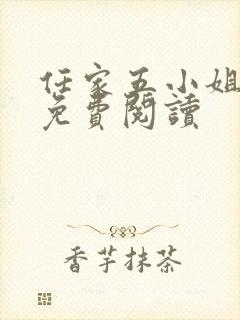 任家五小姐
免費閱讀
香芋抹茶